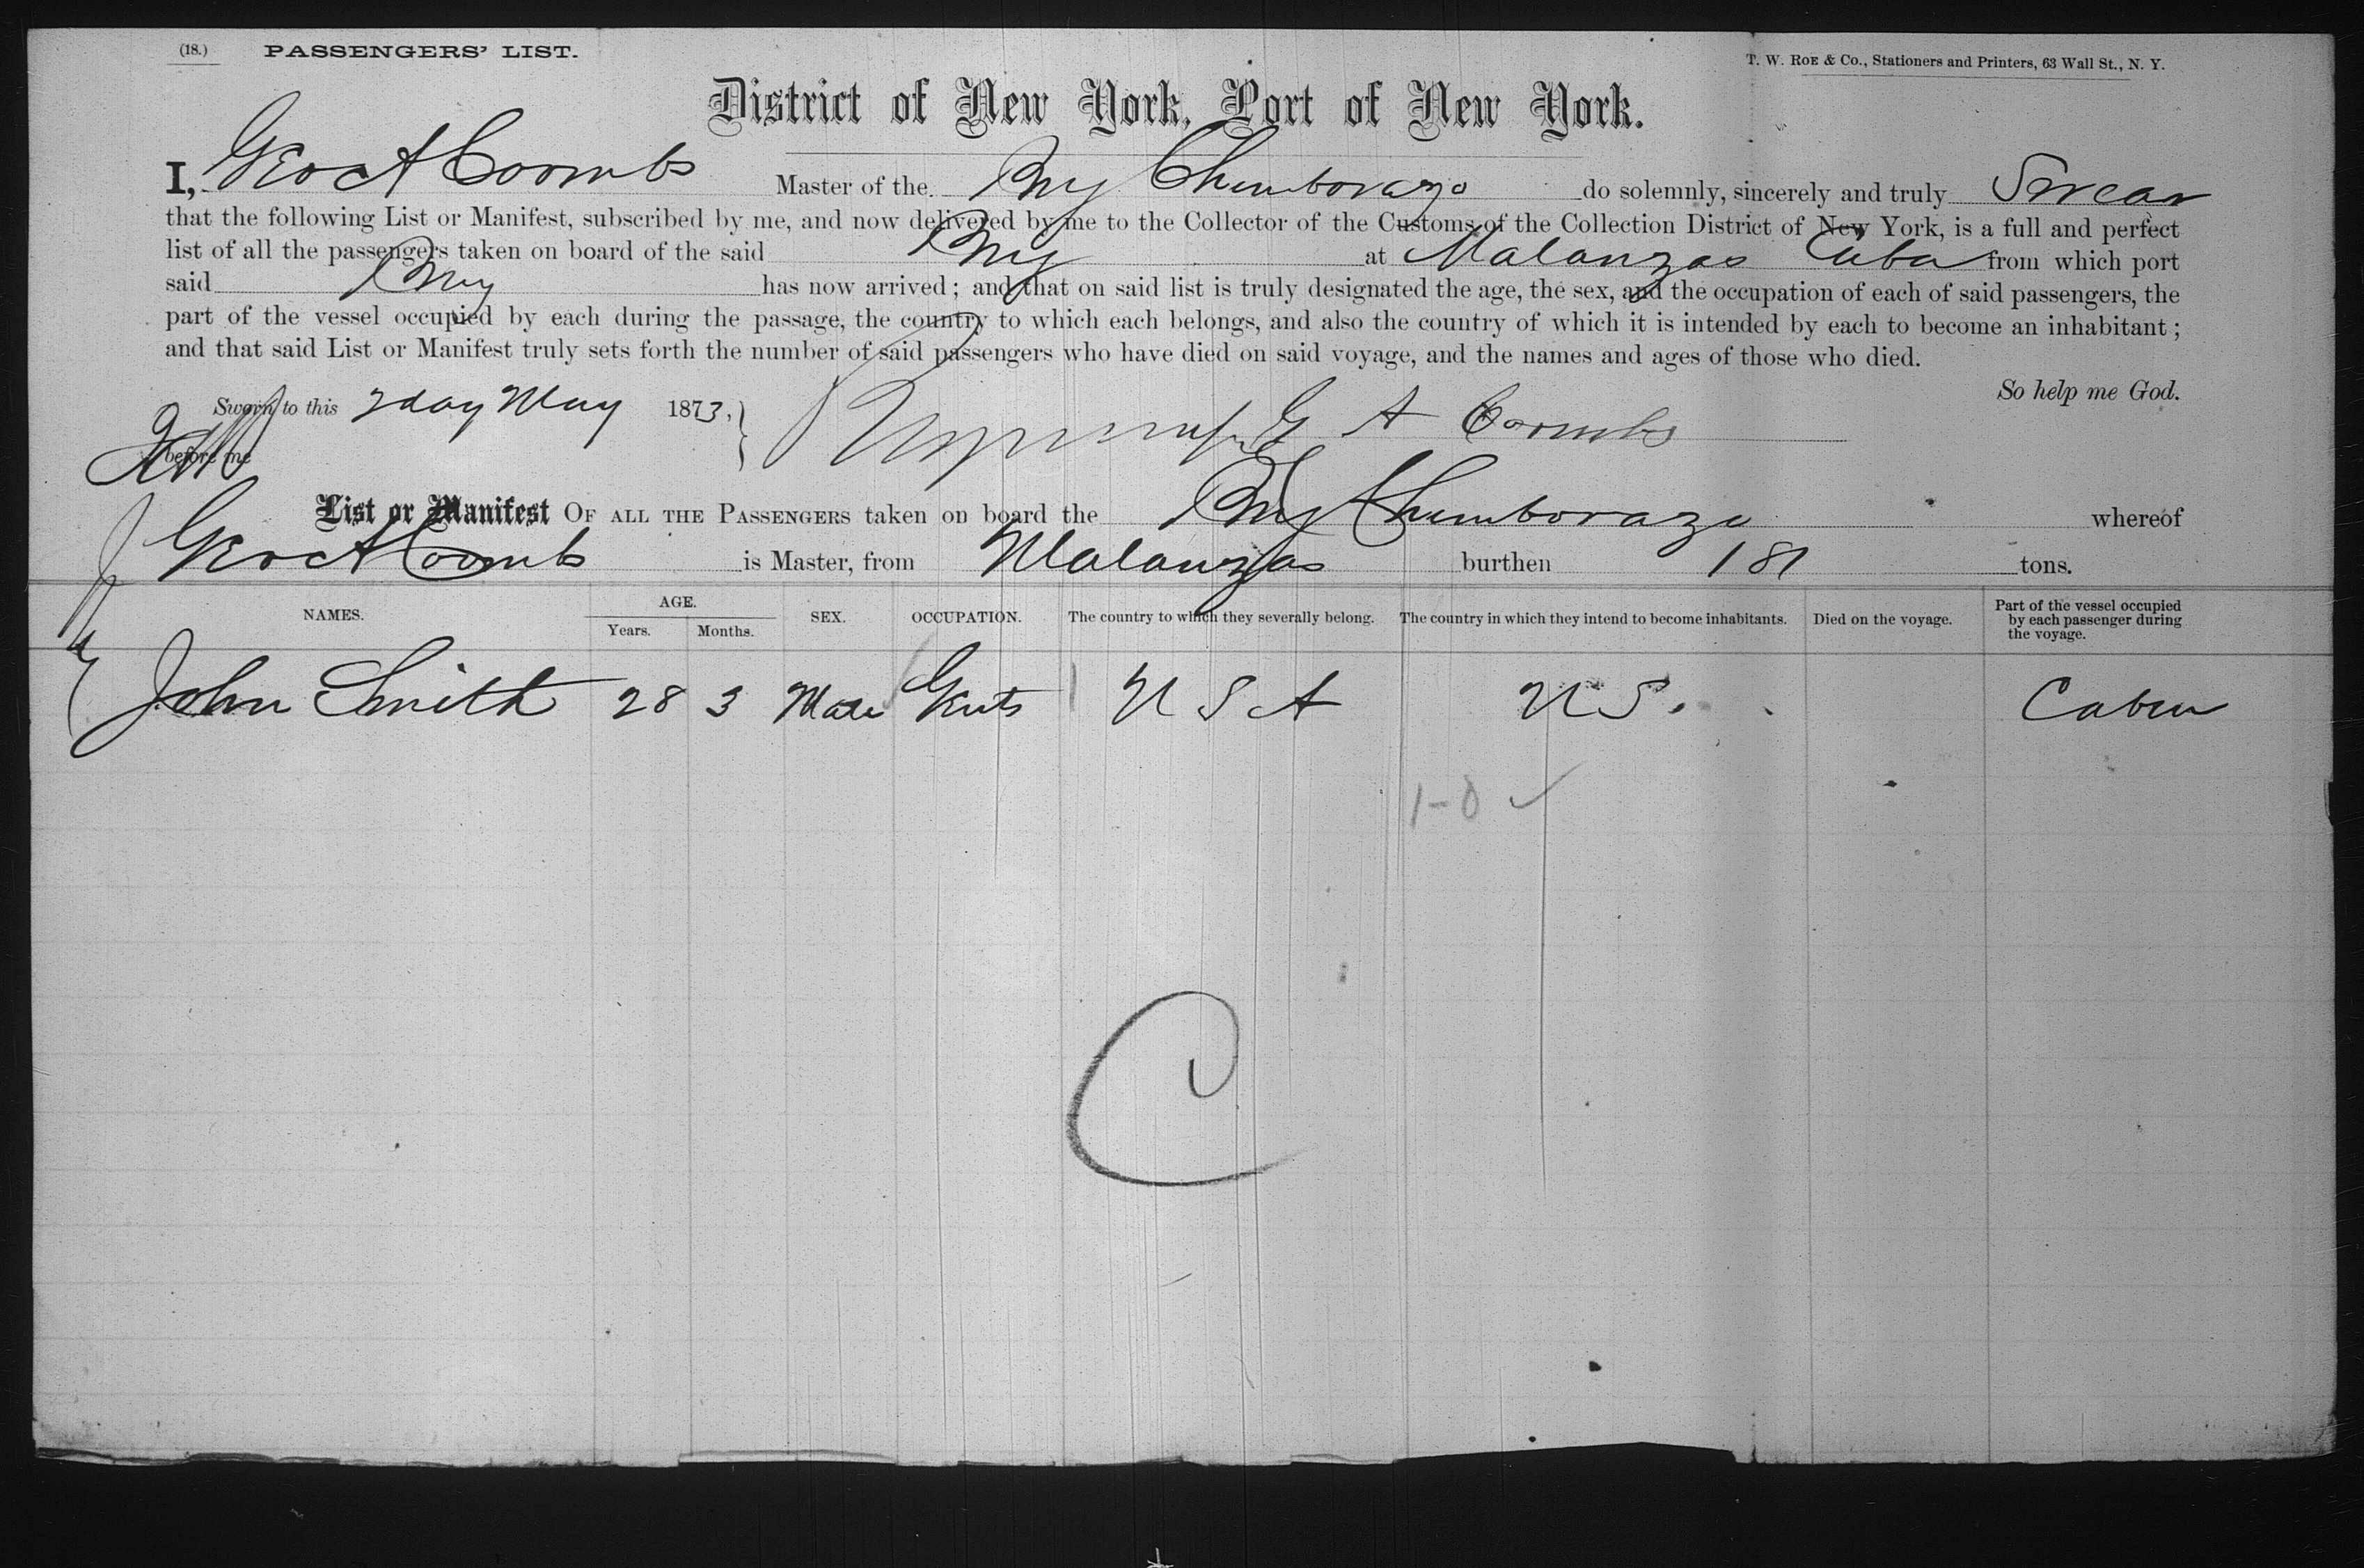 (18.) PASSENGERS' LIST. T. W. ROE & Co., Stationers and Printers, 63 Wall St., N. Y.
District of New York, Port of New York.
I, Geo A Coombs Master of the Brig Chimborazo do solemnly, sincerely and truly Swear
that the following List or Manifest, subscribed by me, and now delivered by me to the Collector of the Customs of the Collection District of New York, is a full and perfect
list of all the passengers taken on board of the said Brig at Matanzas Cuba from which port
said Brig has now arrived; and that on said list is truly designated the age, the sex, and the occupation of each of said passengers, the
part of the vessel occupied by each during the passage, the country to which each belongs, and also the country of which it is intended by each to become an inhabitant;
and that said List or Manifest truly sets forth the number of said passengers who have died on said voyage, and the names and ages of those who died.
So help me God.
Sworn to this 2 day May 1873, G A Coombs
before me
List or Manifest OF ALL THE PASSENGERS taken on board the Brig Chimborazo whereof
Geo A Coombs is Master, from Matanzas burthen 181 tons.
NAMES. AGE. Years. Months. SEX. OCCUPATION. The country to which they severally belong. The country in which they intend to become inhabitants. Died on the voyage. Part of the vessel occupied by each passenger during the voyage.
John Smith 28 3 Male Gents U S A U S. Cabin
1-0 ✓
C